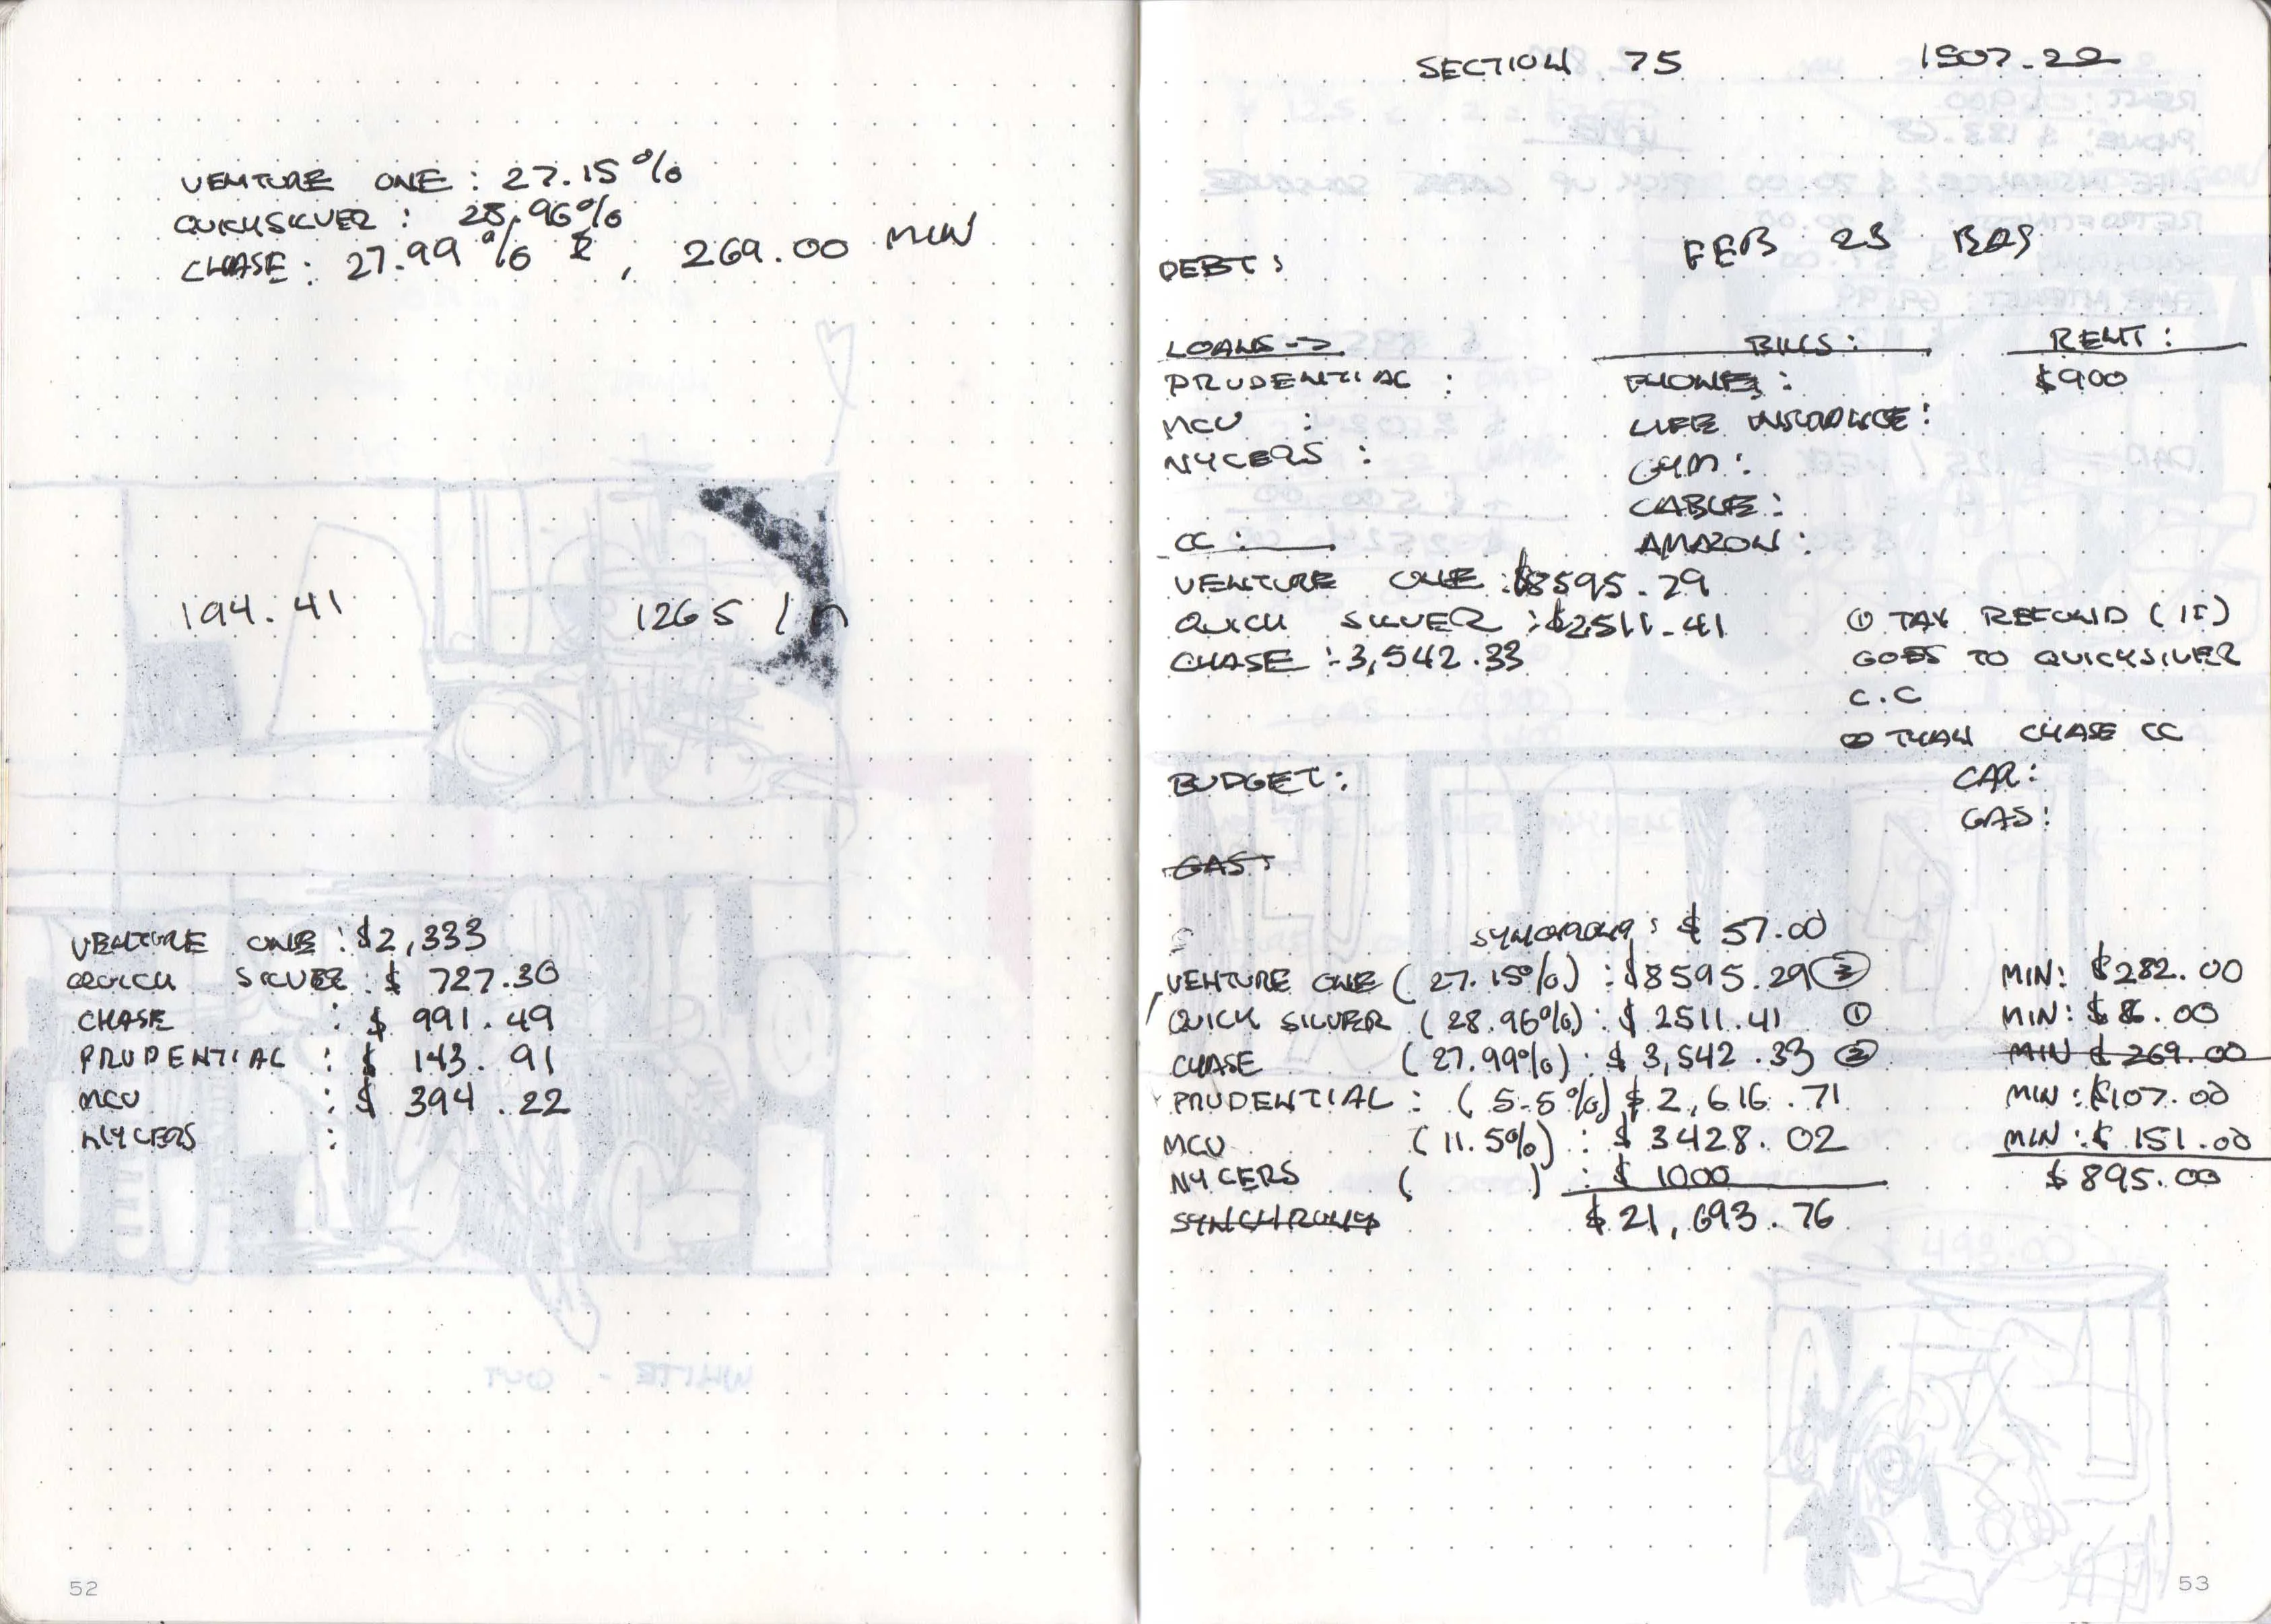 VENTURE ONE : 27.15%
QUICKSILVER : 28.96%
CHASE : 27.99% , 269.00 MIN
194.41 1265 /
VENTURE ONE : $2,333
QUICK SILVER : $ 727.30
CHASE : $ 991.49
PRUDENTIAL : $ 143.91
MCU : $ 394.22
NYCERS :
WHITE - OUT
52
SECTION 75 1507.22
FEB 23
DEBT :
LOANS -> BILLS : RENT :
PRUDENTIAL : PHONE : $900
MCU : LIFE INSURANCE :
NYCERS : GYM :
CABLE :
CC : AMAZON :
VENTURE ONE : $8595.29
QUICK SILVER : $2511.41 ① TAX REFUND (IF)
CHASE : 3,542.33 GOES TO QUICKSILVER
C.C
② THAN CHASE CC
BUDGET : CAR :
GAS :
GAS :
SYNCHRONY : $ 57.00
VENTURE ONE ( 27.15%) : $8595.29 ③ MIN: $282.00
QUICK SILVER ( 28.96%) : $ 2511.41 ① MIN: $ 86.00
CHASE (27.99%) : $ 3,542.33 ② MIN $ 269.00
PRUDENTIAL : ( 5.5%) $ 2,616.71 MIN : $107.00
MCU (11.5%) : $ 3428.02 MIN : $ 151.00
NYCERS ( ) : $ 1000 $895.00
SYNCHRONY $21,693.76
53